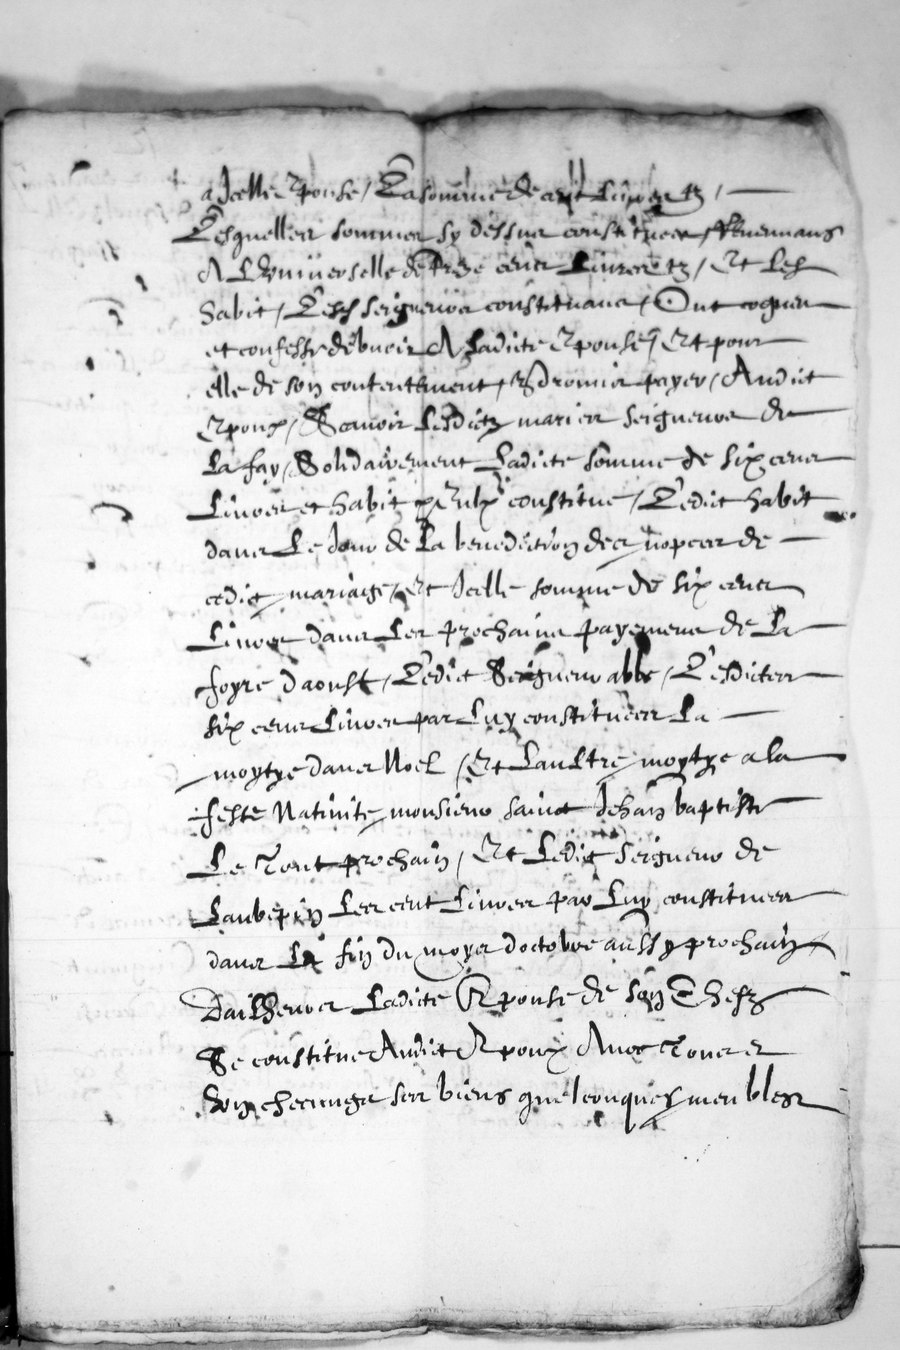 a Jcelle Espouse / La somme de cent Livres tz /
Lesquelles sommes sy dessus constituees / Revenans
A Luniverselle de treze cens Livres tz / Et Les
habit / Lesd seigneurs constituans / Ont cogneu
et confesse debvoir A Ladicte Espouse / Et pour
elle de son contentement / Et promis payer / Audict
Espoux / Scavoir Lesdictz maries seigneurs de
La fay / Solidairement Ladicte somme de six cens
Livres et habit constitue / Ledict habit
dans Le Jour de La benediction des nopces de
cedict mariaige / et Jcelle somme de six cens
Livres dans Les prochains payemens de La
foyre daoust / Ledict Seigneur abbe / Lesdictes
six cens Livres par Luy constituees La
moytye dans Noel / Et Laultre moytye a la
feste Nativite monsieur sainct Jehan baptiste
Le tout prochain / Et Ledict seigneur de
Laubepin Les cent Livres par Luy constituees
dans La fin du moys doctobre aussy prochain
Dailheurs Ladicte Espouse de son Chefz
Se constitue Audict Espoux Avec tous et
ungchecungs ses biens quelconques meubles